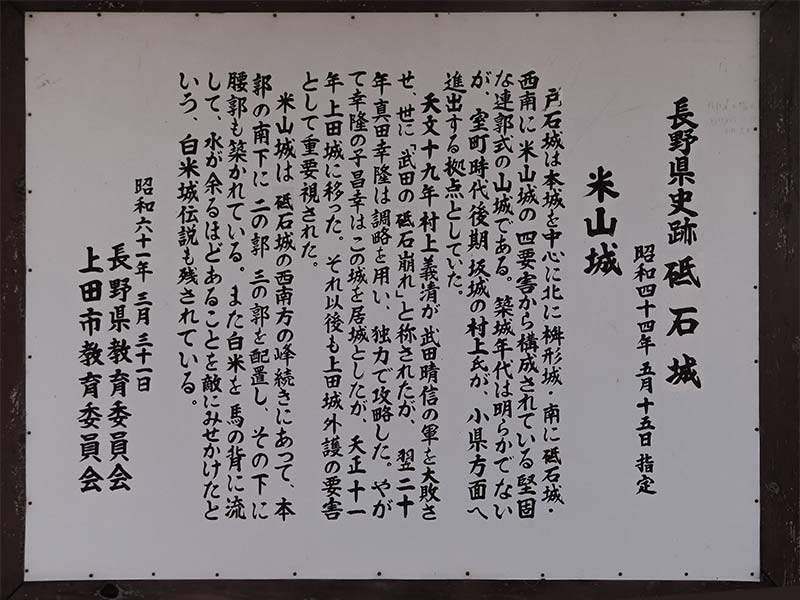 長野県史跡 砥石城
昭和四十四年 五月十五日 指定
米山城
戸石城は本城を中心に北に桝形城・南に砥石城・
西南に米山城の四要害から構成されている堅固
な連郭式の山城である。築城年代は明らかでない
が、室町時代後期、坂城の村上氏が、小県方面へ
進出する拠点としていた。
天文十九年村上義清が武田晴信の軍を大敗さ
せ、世に「武田の砥石崩れ」と称されたが、翌二十
年真田幸隆は調略を用い、独力で攻略した。やが
て幸隆の子昌幸はこの城を居城としたが、天正十一
年上田城に移った。それ以後も上田城外護の要害
として重要視された。
米山城は砥石城の西南方の峰続きにあって、本
郭の南下に二の郭三の郭を配置し、その下に
腰郭も築かれている。また白米を馬の背に流
して、水が余るほどあることを敵にみせかけたと
いう、白米城伝説も残されている。
昭和六十一年 三月三十一日
長野県教育委員会
上田市教育委員会